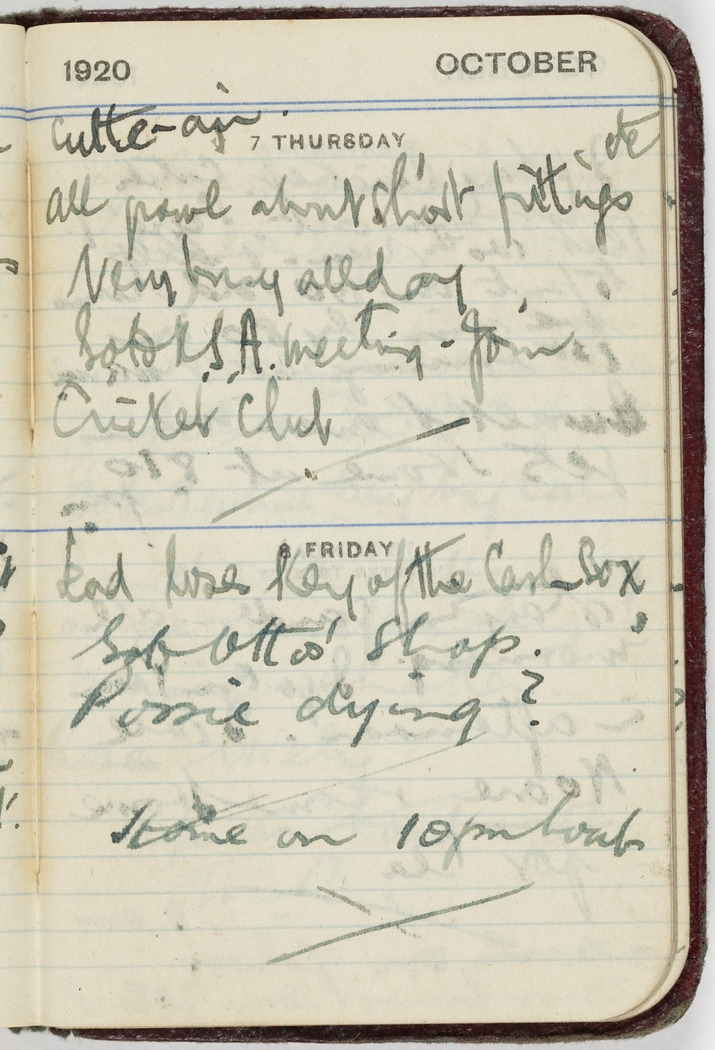 1920 OCTOBER
7 THURSDAY
etc
all prowl about Short fittings
Very busy all day
Go to R.S.A. meeting - Join
Cricket Club
8 FRIDAY
loses Key of the Cash Box
Go to Otto's' Shop.
Possie dying?
Home on 10pm boat